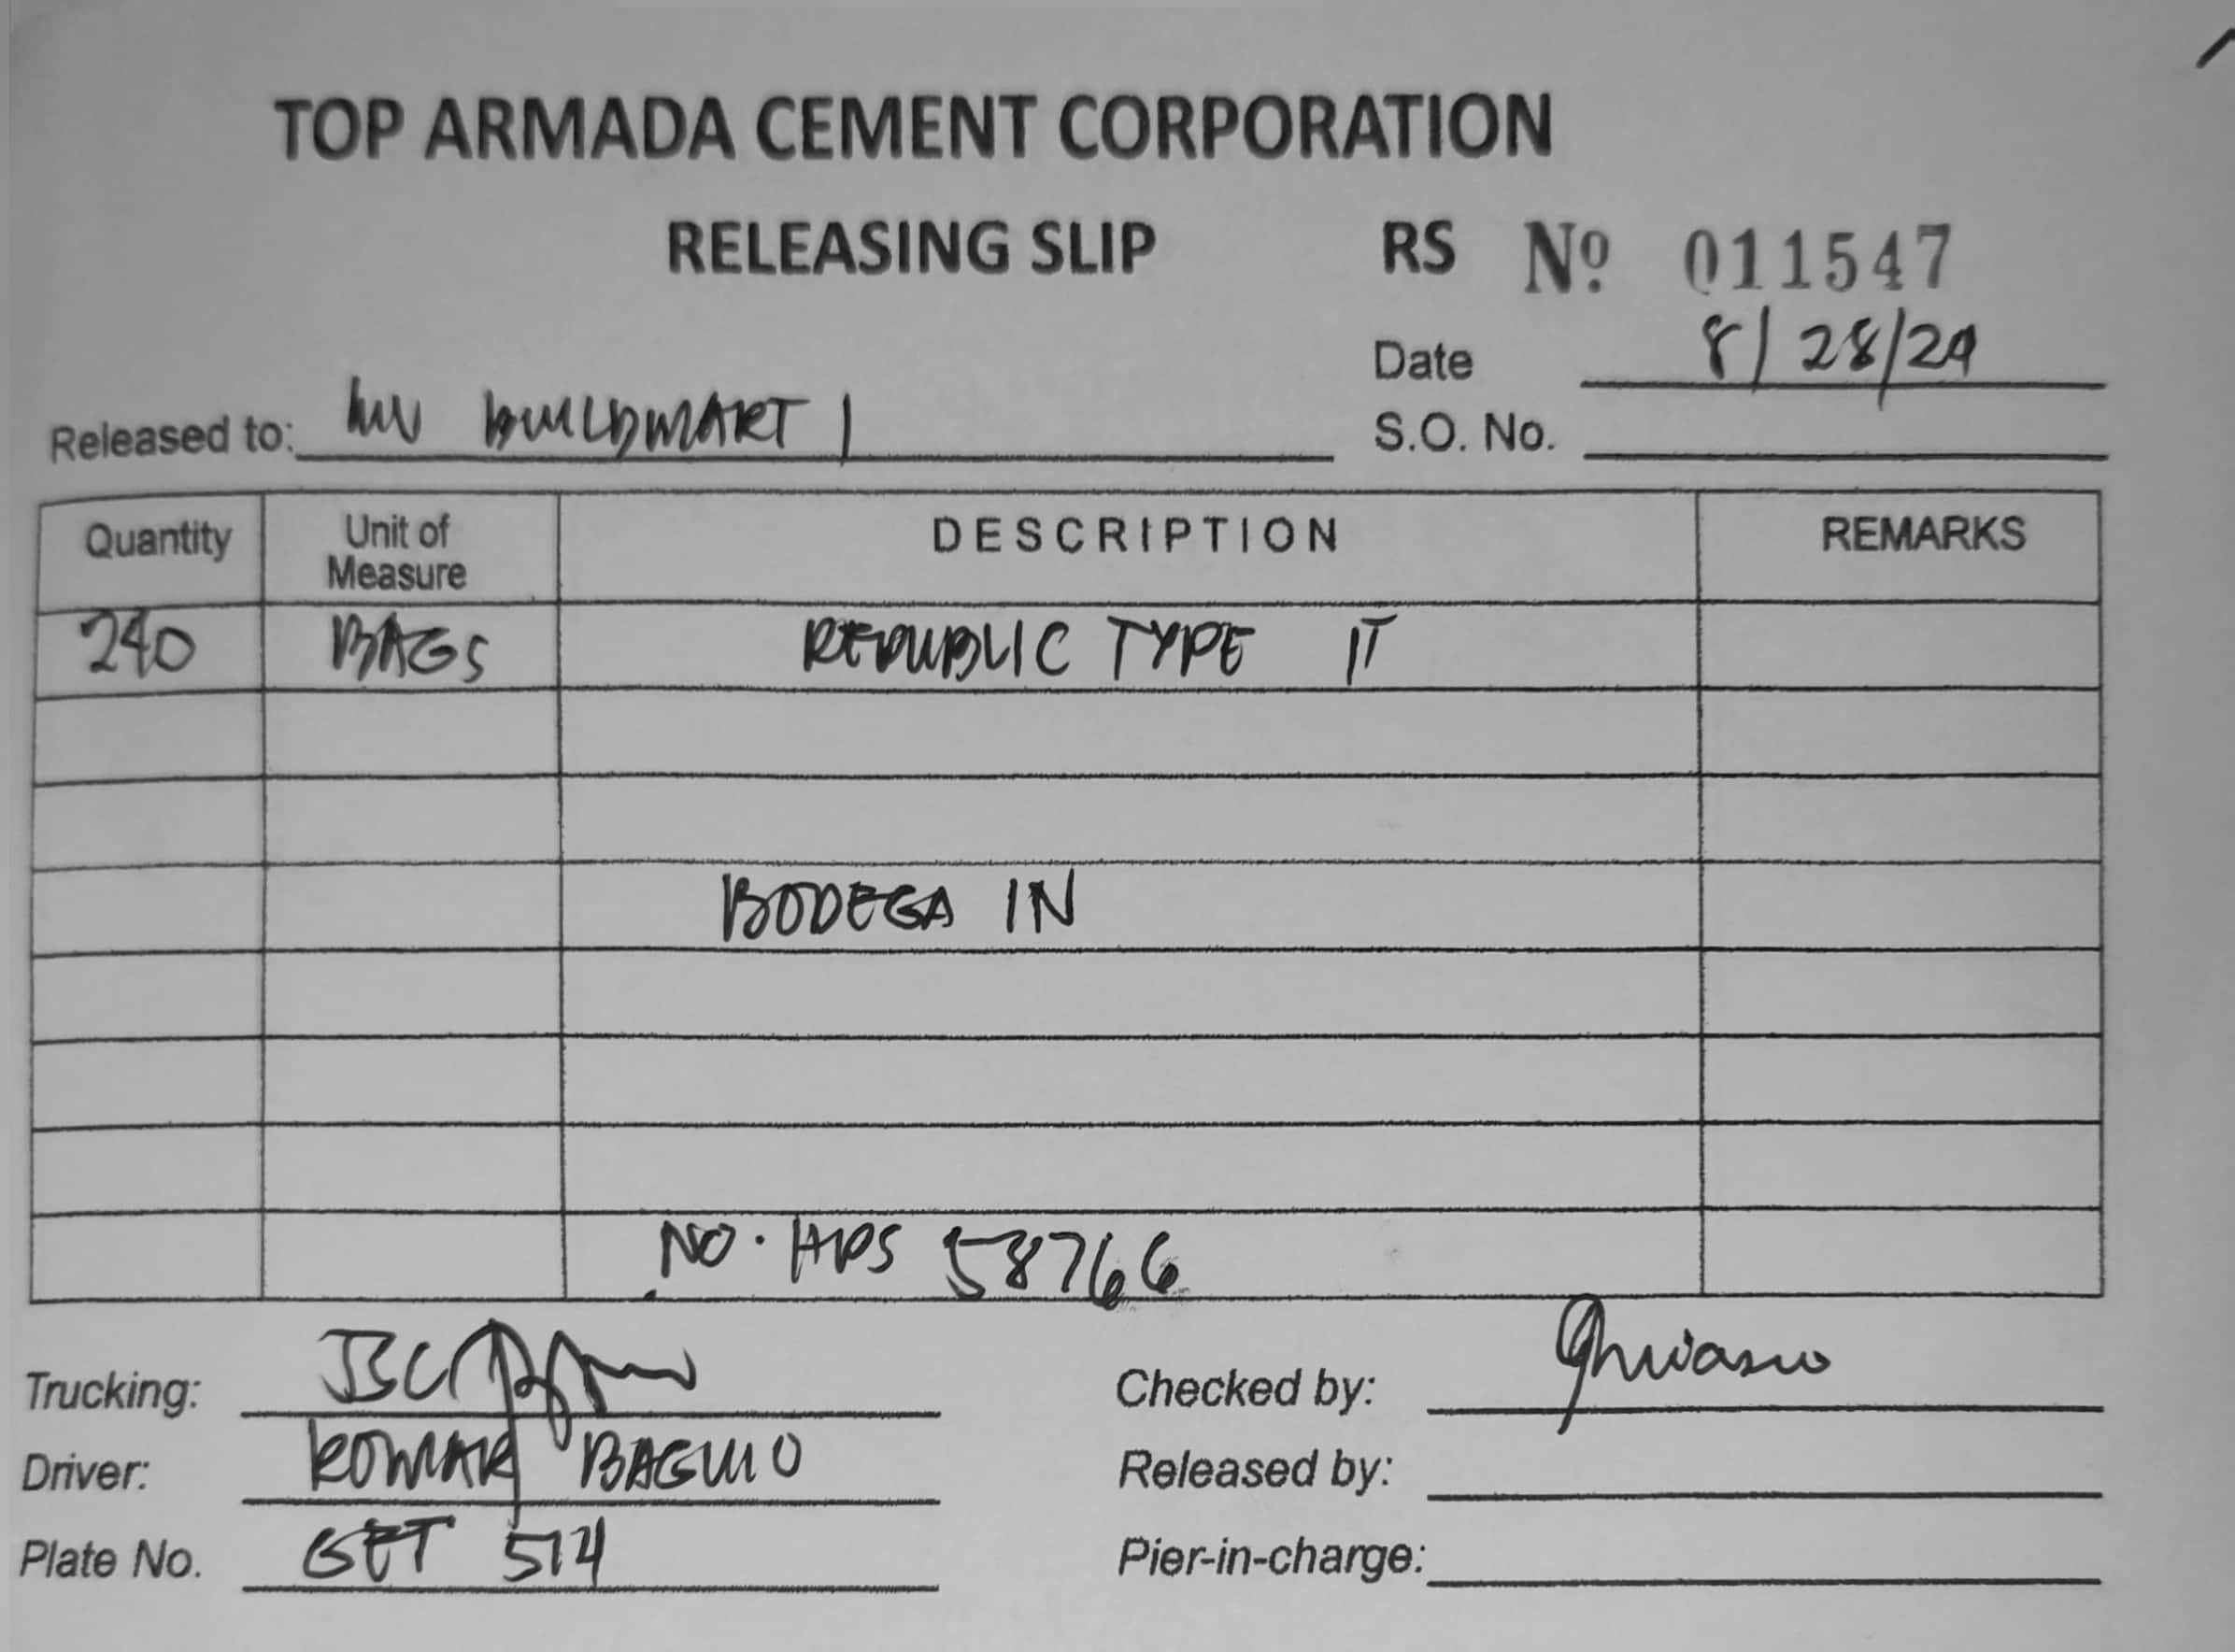 TOP ARMADA CEMENT CORPORATION
RELEASING SLIP RS Nº 011547
Date 8/28/24
Released to: BUILDMART 1
S.O. No.
Quantity Unit of Measure DESCRIPTION REMARKS
240 BAGS REPUBLIC TYPE 1T
BODEGA IN
NO. HPS 58766
Trucking: JBC
Checked by:
Driver: ROMAR BAGUIO
Released by:
Plate No. GET 514
Pier-in-charge: